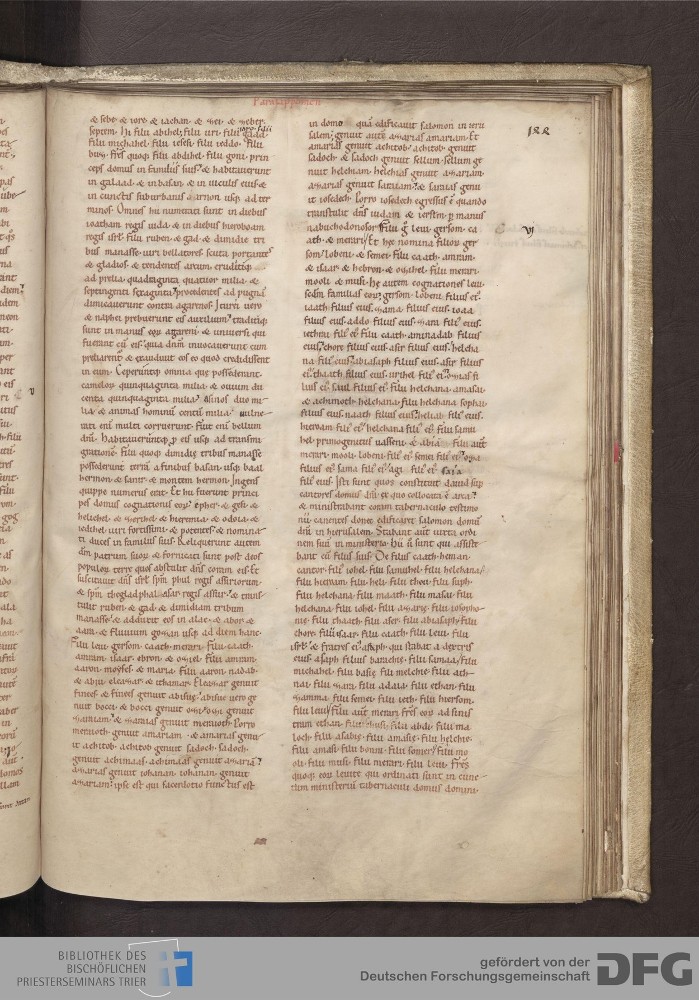 Paralippomenon
& sebe· & iore· & iachan· & zie· & heber·
septem. hi filii abihel· filii uri· filii
filii michahel· filii iesesi· filii ieddo· filii
buz· fr̄s quoq; filii abdihel· filii goni· prin
ceps domus in familiis suis· & habitauerunt
in galaad· & in basan· & in uiculis eius· &
in cunctis suburbanis sarron usq; ad ter
minos. Omnes hi numerati sunt in diebus
ioatham regis iuda· & in diebus hieroboam
regis isrl· filii ruben· & gad· & dimidie tri
bus manasse· uiri bellatores scuta portantes
& gladios· & tendentes arcum· eruditiq;
ad prelia· quadraginta quatuor milia· &
septingenti sexaginta procedentes ad pugnā
dimicauerunt contra agarenos. Iturei uero
& naphei prebuerunt eis auxilium· traditiq;
sunt in manus eoꝝ agareni· & uniuersi qui
fuerant cū eis· quia dnm̄ inuocauerunt cum
preliarent· & exaudiuit eos eo quod credidissent
in eum· Ceperuntq; omnia que possederant
camelorꝫ quinquaginta milia· & ouium du
centa quinquaginta milia· Asinos duo mi
lia· & animas hominū centū milia· uulne
rati eni multi corruerunt· Fuit eni bellum
dn̄i· Habitaueruntq; p eis usq; ad transmi
gratione· filii quoq; dimidie tribus manasse
possederunt terrā a finibus basan· usq; baal
hermon· & sanir· & montem hermon· Ingens
quippe numerus erat· Et hi fuerunt princi
pes domus cognationis eoꝝ· epher· & gesi· &
heliehel· & ezrihel· & hieremia· & odoia· &
iedihel· uiri fortissimi· & potentes· & nomina
ti duces in familiis suis· Reliquerunt autem
dm̄ patrum suoꝝ· & fornicati sunt post deos
populoꝝ terre quos abstulit dn̄s coram eis· Et
suscitauit dn̄s isrl spm̄ phul regis assiriorum·
& spm̄ thegladphalasar regis assur· & trans
tulit ruben· & gad· & dimidiam tribum
manasse· & adduxit eos in alae· & abor· &
aam· & fluuium gozan usq; ad diem hanc·
Filii leui· gersom· caath· merari· Filii caath·
amram· isaar· ebron· & oziel· Filii amram·
aaron· moyses· & maria· Filii aaron· nadab·
& abiu· eleazar· & ithamar· Eleazar genuit
finees· & finees genuit abisue· abisue uero ge
nuit bocci· & bocci genuit ozi· ozi genuit
zaraiam· & zaraias genuit meraioth· Porro
meraioth genuit amariam· & amarias genu
it achitob· achitob genuit sadoch· sadoch
genuit achimaas· achimaas genuit azariā·
azarias genuit iohanan· iohanan genuit
azariam· ipse est qui sacerdotio functus est
in domo quā edificauit salomon in ieru
salem; genuit autē azarias amariam· Et
amarias genuit achitob· achitob genuit
sadoch· & sadoch genuit sellum· sellum ge
nuit helchiam· helchias genuit azariam·
azarias genuit saraiam· & saraias genu
it iosedech· Porro iosedech egressus ē quando
transtulit dn̄s iudam· & ierl̄m p manus
nabuchodonosor· Filii g̊ leui· gersom· ca
ath· & merari· Et hec nomina filioꝝ ger
som· lobeni· & semei· Filii caath· amram·
& isaar· & hebron· & oziihel· Filii merari·
mooli· & musi· he autem cognationes leui·
sedm̄ familias eoꝝ· gersom· lobeni· filius ei·
iaath· filius eius· zama· filius eius· ioaa
filius eius· addo· filius eius· zara· fili eius·
iethrai· fili ei· Filii caath· aminadab· filius
eius· chore· filius eius· asir· filius eius· helcha
na· fili eius· abiasaph· filius eius· asir· filius
ei· thaath· filius eius· urihel· fili ei· ozias· fi
lius ei· saul· filius ei· Filii helchana· amasai·
& achimoth· helchana· Filii helchana· sophai·
filius eius· naath· filius eius· heliab· fili eius·
hieroam· fili ei· helchana· fili ei· Filii samu
hel· primogenitus uasseni· & abia· Filii aut̄
merari· mooli· lobeni· fili ei· semei· fili ei· oza
filius ei· sama· fili ei· agi· fili ei· saya
fili eius· Isti sunt quos constituit dauid sup
cantores domus dn̄i· ex quo collocata ē arca·
& ministrabant coram tabernaculo testimo
nii· canentes donec edificaret salomon domū
dn̄i in hierusalem· Stabant aut̄ iuxta ordi
nem suū in ministerio· Hii ū sunt qui assiste
bant cū filiis suis· De filiis caath· heman·
cantor· filii iohel· filii samuhel· filii helchana·
filii hieroam· filii heli· filii thou· filii suph·
filii helchana· filii maath· filii masai· filii
helchana· filii iohel· filii azarie· filii iosopho
nie· filii thaath· filii aser· filii abiasaph· filii
chore· filii isaar· filii caath· filii leui· filii
isrl· & fratres ei· aseph· qui stabat a dextris
eius· asaph filius barachie· filii samaa· filii
michahel· filii basie· filii melchie· filii ath
nai· filii zara· filii adaia· filii ethan· filii
zamma· filii semei· filii ieth· filii hiersom·
filii leui· Filii aut̄ merari fr̄es eoꝝ ad sinis
tram ethan· filii chusi· filii abdi· filii ma
loch· filii asabie· filii amasie· filii helchie·
filii amasi· filii bonni· filii somer· filii mo
oli· filii musi· filii merari· filii leui· Fr̄es
quoq; eoꝝ leuite qui ordinati sunt in cunc
tum ministerii tabernaculi domus domini·
VI
V
BIBLIOTHEK DES
BISCHÖFLICHEN
PRIESTERSEMINARS TRIER
gefördert von der
Deutschen Forschungsgemeinschaft
DFG